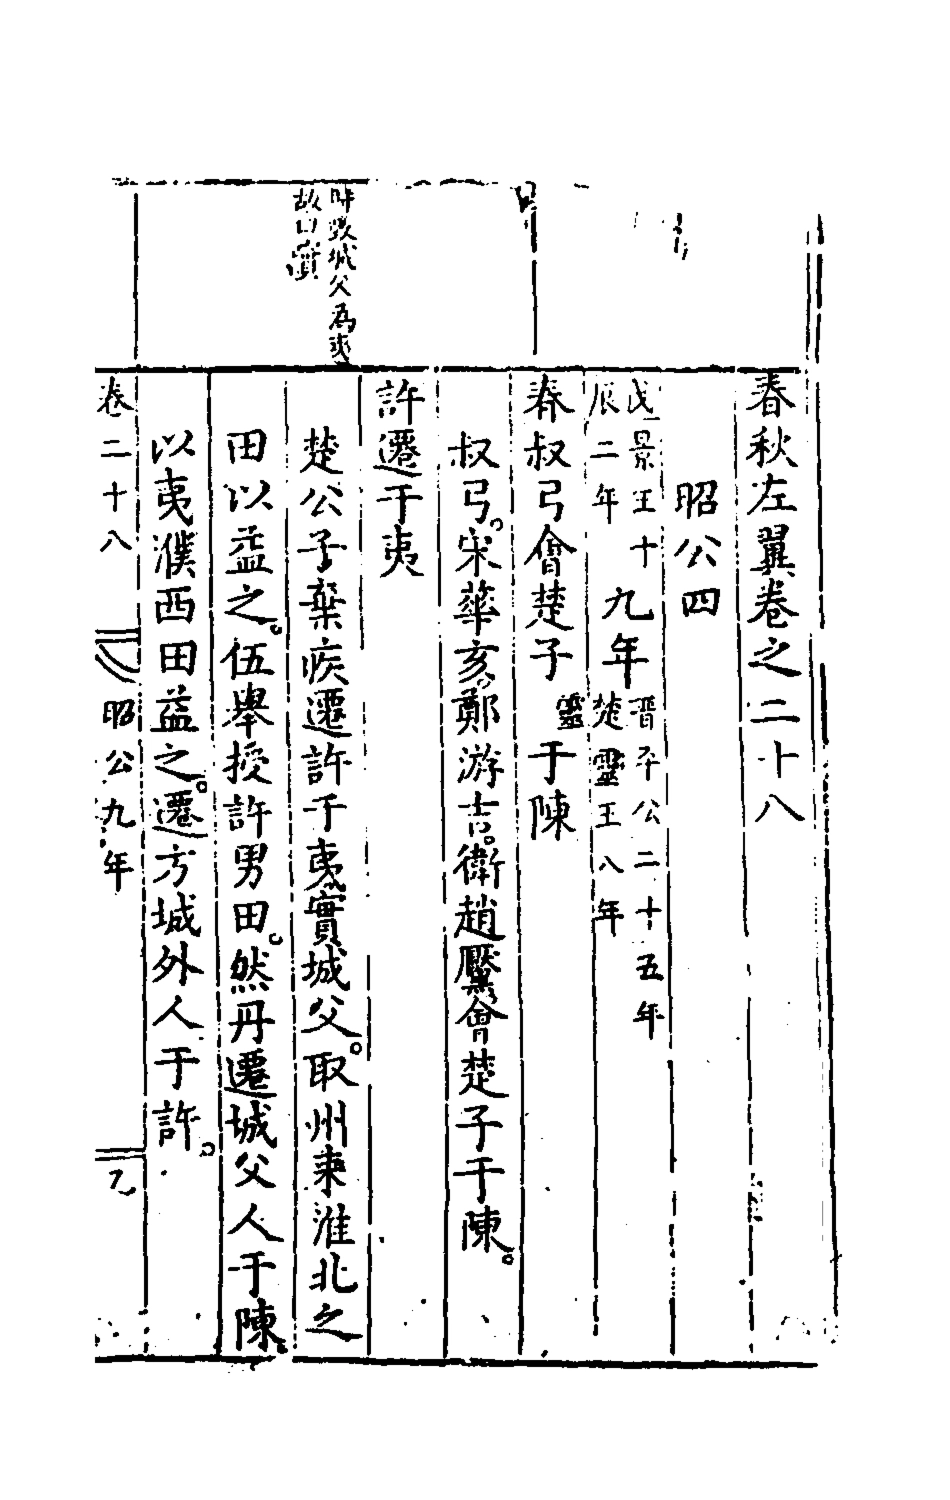 春秋左翼卷之二十八
昭公四
戊辰景王十二年九年晉平公二十五年楚靈王八年
春叔弓會楚子靈于陳
叔弓。宋華亥。鄭游吉。衛趙黶會楚子于陳。
許遷于夷
時改城父爲夷
故曰實
楚公子棄疾遷許于夷實城父。取州來淮北之
田以益之。伍舉授許男田。然丹遷城父人于陳。
以夷濮西田益之。遷方城外人于許。
卷二十八
昭公九年